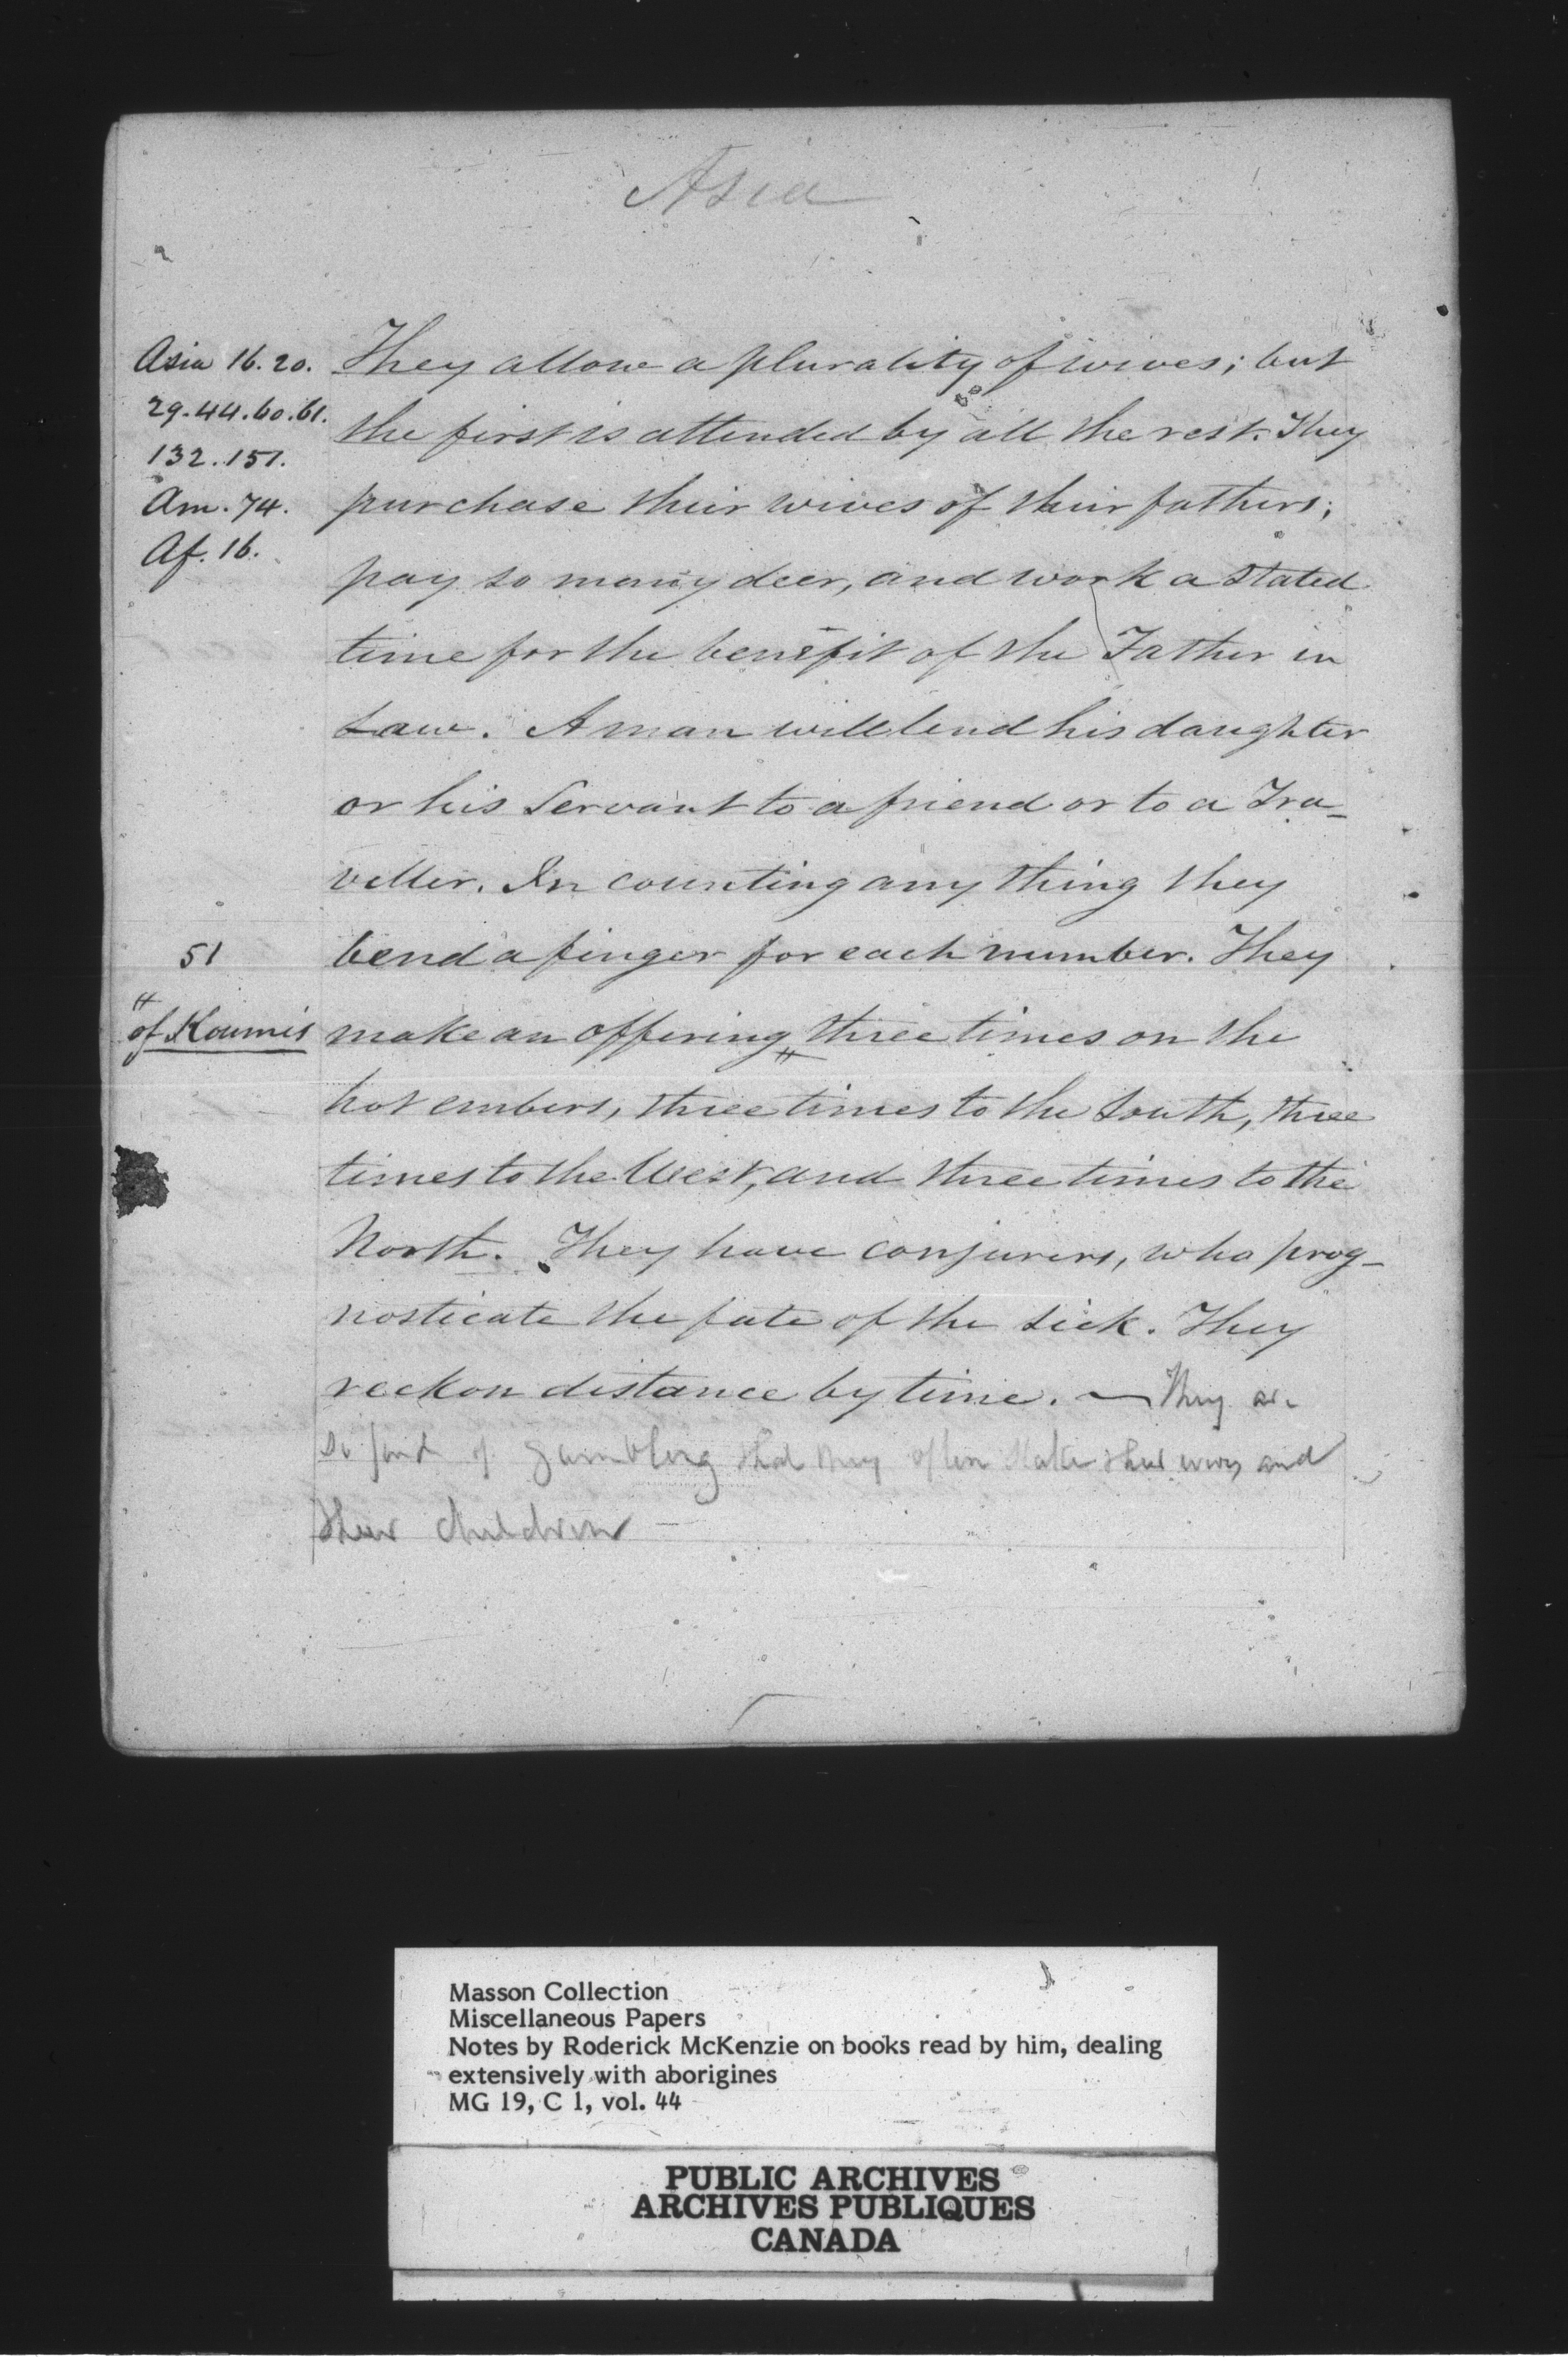 Asia
Asia 16. 20.
29. 44. 60. 61.
132. 151.
Am. 74.
Af. 16.
They allow a plurality of wives; but
the first is attended by all the rest. They
purchase their wives of their fathers;
pay so many deer, and work a stated
time for the benefit of the Father in
Law. A man will lend his daughter
or his Servant to a friend or to a Tra_
veller. In counting any thing they
51
bend a finger for each number. They
# of Koumis
make an offering # three times on the
hot embers, three times to the South, three
times to the West, and three times to the
North. They have conjurers, who prog_
nosticate the fate of the sick. They
reckon distance by time. — They are
so fond of gambling that they often stake their wives and
their children —
Masson Collection
Miscellaneous Papers
Notes by Roderick McKenzie on books read by him, dealing
extensively with aborigines
MG 19, C 1, vol. 44
PUBLIC ARCHIVES
ARCHIVES PUBLIQUES
CANADA